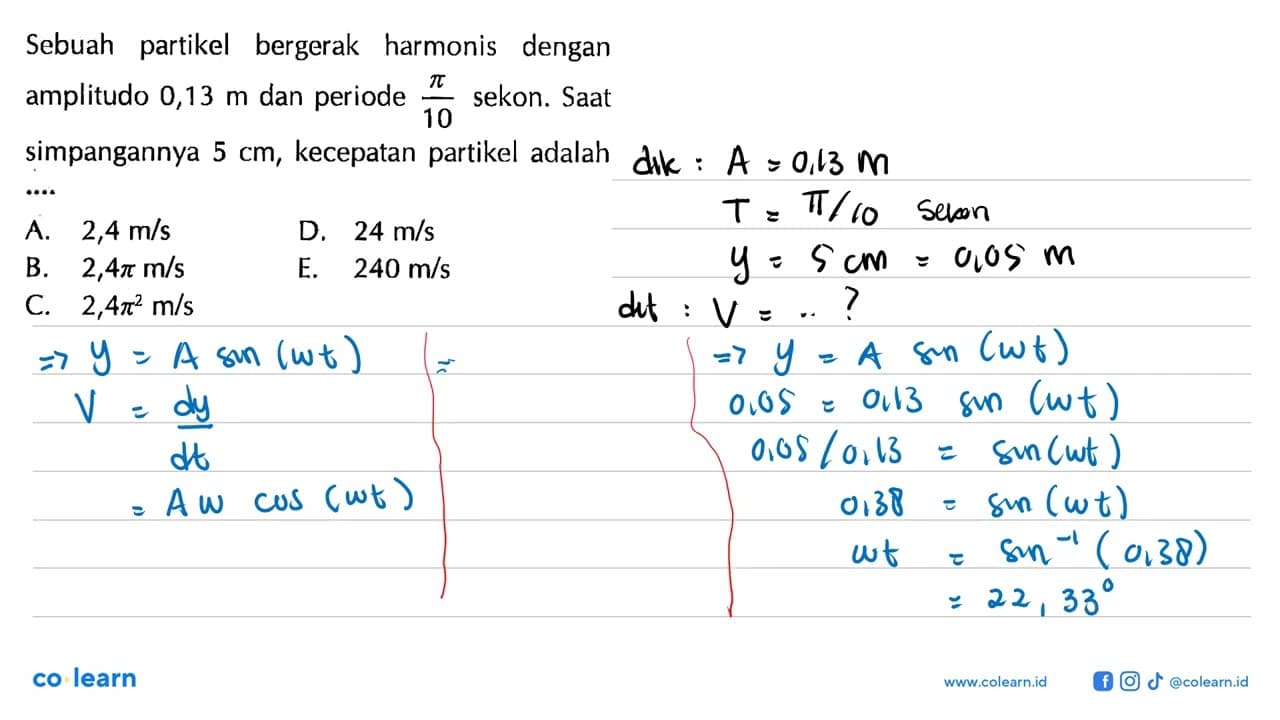 Sebuah partikel bergerak harmonis dengan
amplitudo 0,13 m dan periode π/10 sekon. Saat
simpangannya 5 cm, kecepatan partikel adalah
....
A. 2,4 m/s D. 24 m/s
B. 2,4π m/s E. 240 m/s
C. 2,4π² m/s
dik : A = 0,13 m
T = π/10 sekon
y = 5 cm = 0,05 m
dit : V = .. ?
=> y = A sin (wt)
V = dy/dt
= A w cos (wt)
=
=> y = A sin (wt)
0,05 = 0,13 sin (wt)
0,05 / 0,13 = sin (wt)
0,38 = sin (wt)
wt = sin⁻¹ (0,38)
= 22,33°
co learn
www.colearn.id @colearn.id